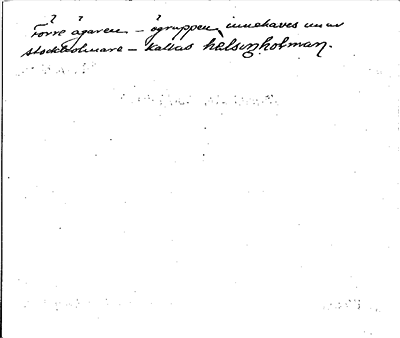 Förre ägaren – ögruppen innehaves av
stockholmare – kallas hälsingholmar.